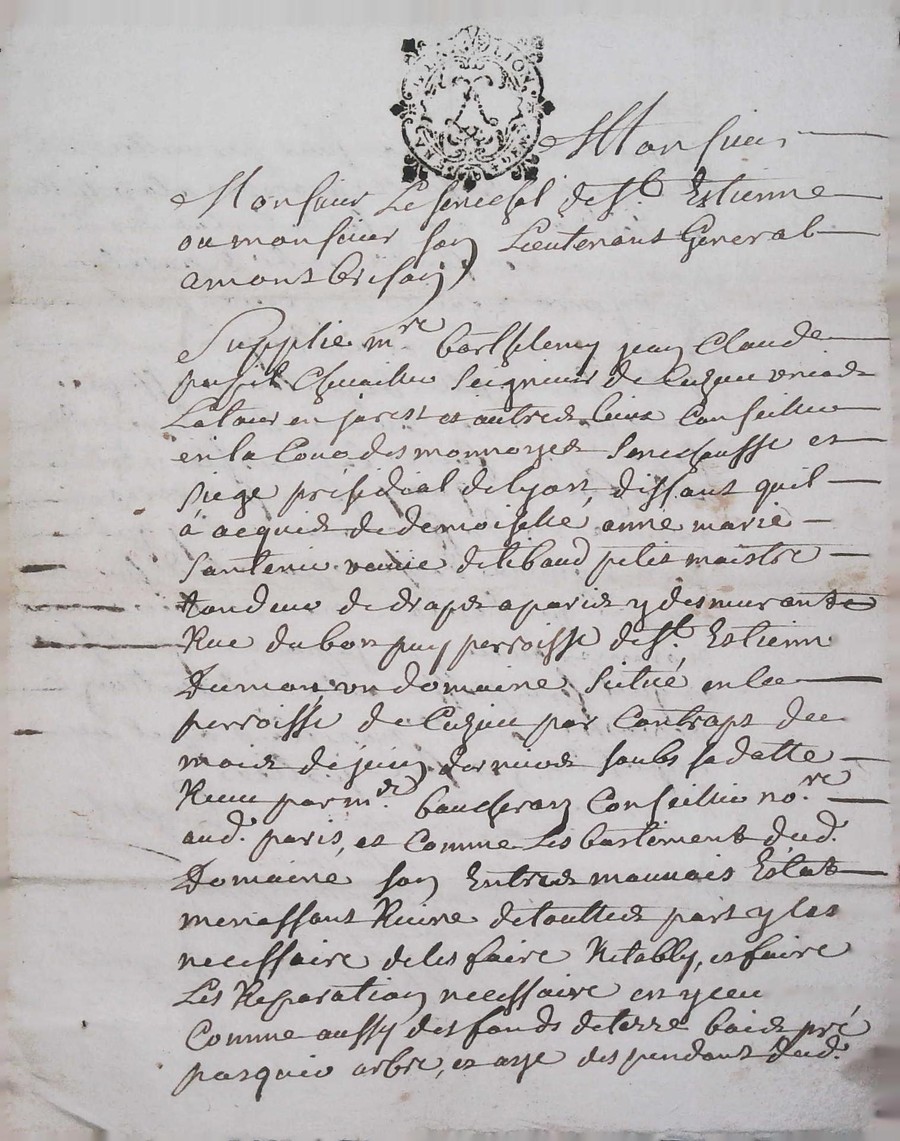 GENERALITE LION
Monsieur
Monsieur Le senechal de St. Estienne
ou monsieur son Lieutenant General
a montbrison
Supplie mre. barthelemy jean Claude
pupil Chevailler Seigneur de Cuzieu
Latour en jarest et autres lieux Conseiller
en la Cour des monnoyes Senechaussee et
siege présidial de lyon, dissant quil
à acquis de demoiselle anne marie
veuve de tibaud petit maistre
tondeur de draps a paris y desmurante
Rue du bon puy perroisse de St. Estienne
Dumon, un domaine Situé en la
perroisse de Cuzieu par Contrapt du
mois de juin dernier soubs sa datte
Receu par me. Conseiller nore.
aud. paris, et Comme Les bastiment dud.
Domaine son En tres mauvais Estat
menassant Ruine de touttes part y las
necessaire de les faire Retably, et faire
Les Reparation necessaire en yceu
Comme aussy des fonds de terre bois pré
pasquier arbre, et aye des pendant dud.